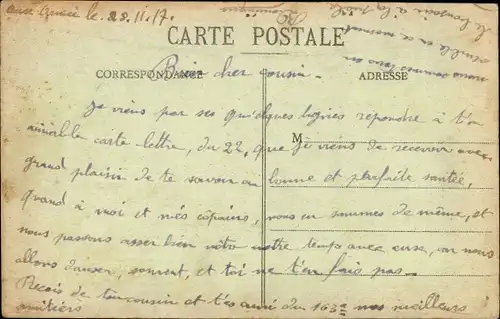 aux Armées le 29.11.17.
CARTE POSTALE
CORRESPONDANCE
ADRESSE
Bien cher cousin.
Je viens par ses quelques lignes repondre à t'on
M
aimable carte lettre, du 22, que je viens de recevoir avec
grand plaisir de te savoir en bonne et parfaite santée,
quand à moi et mes copains, nous en sommes de même, et
nous passons asser bien notre temps avec eux, on nous
allons danser, souvent, et toi ne t'en fais pas.
Recois de ton cousin et t'es ami du 163e nos meilleurs
amitiers
nous sommes
en ce moment